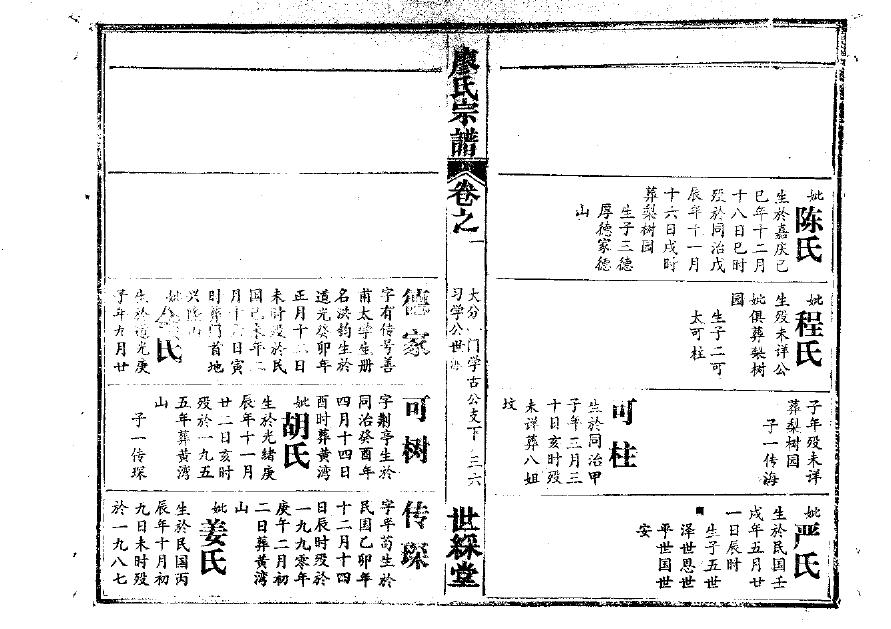 妣
陈氏
生於嘉庆己
巳年十二月
十八日巳时
殁於同治戊
辰年十一月
十六日戌时
葬梨树园
生子三德
厚德家德
山
妣
程氏
生殁未详公
妣俱葬梨树
园
生子二可
太可柱
子年殁未详
葬梨树园
子一传海
可柱
生於同治甲
子年三月三
十日亥时殁
未详葬八姐
坟
妣
严氏
生於民国壬
戌年五月廿
一日辰时
生子五世
泽世恩世
平世国世
安
廖氏宗谱
卷之一
大分一门学古公支下
三六
习学公世
世綵堂
德家
字有传号善
甫太学生册
名洪钧生於
道光癸卯年
正月十二日
未时殁於民
国己未年二
月十六日寅
时葬门首地
妣
氏
生於道光庚
子年九月廿
可树
字荆亭生於
同治癸酉年
四月十四日
酉时葬黄湾
妣
胡氏
生於光绪庚
辰年十一月
廿二日亥时
殁於一九五
五年葬黄湾
山
子一传琛
传琛
字平荀生於
民国乙卯年
十二月十四
日辰时殁於
一九九零年
庚午二月初
二日葬黄湾
山
妣
姜氏
生於民国丙
辰年十月初
九日未时殁
於一九八七